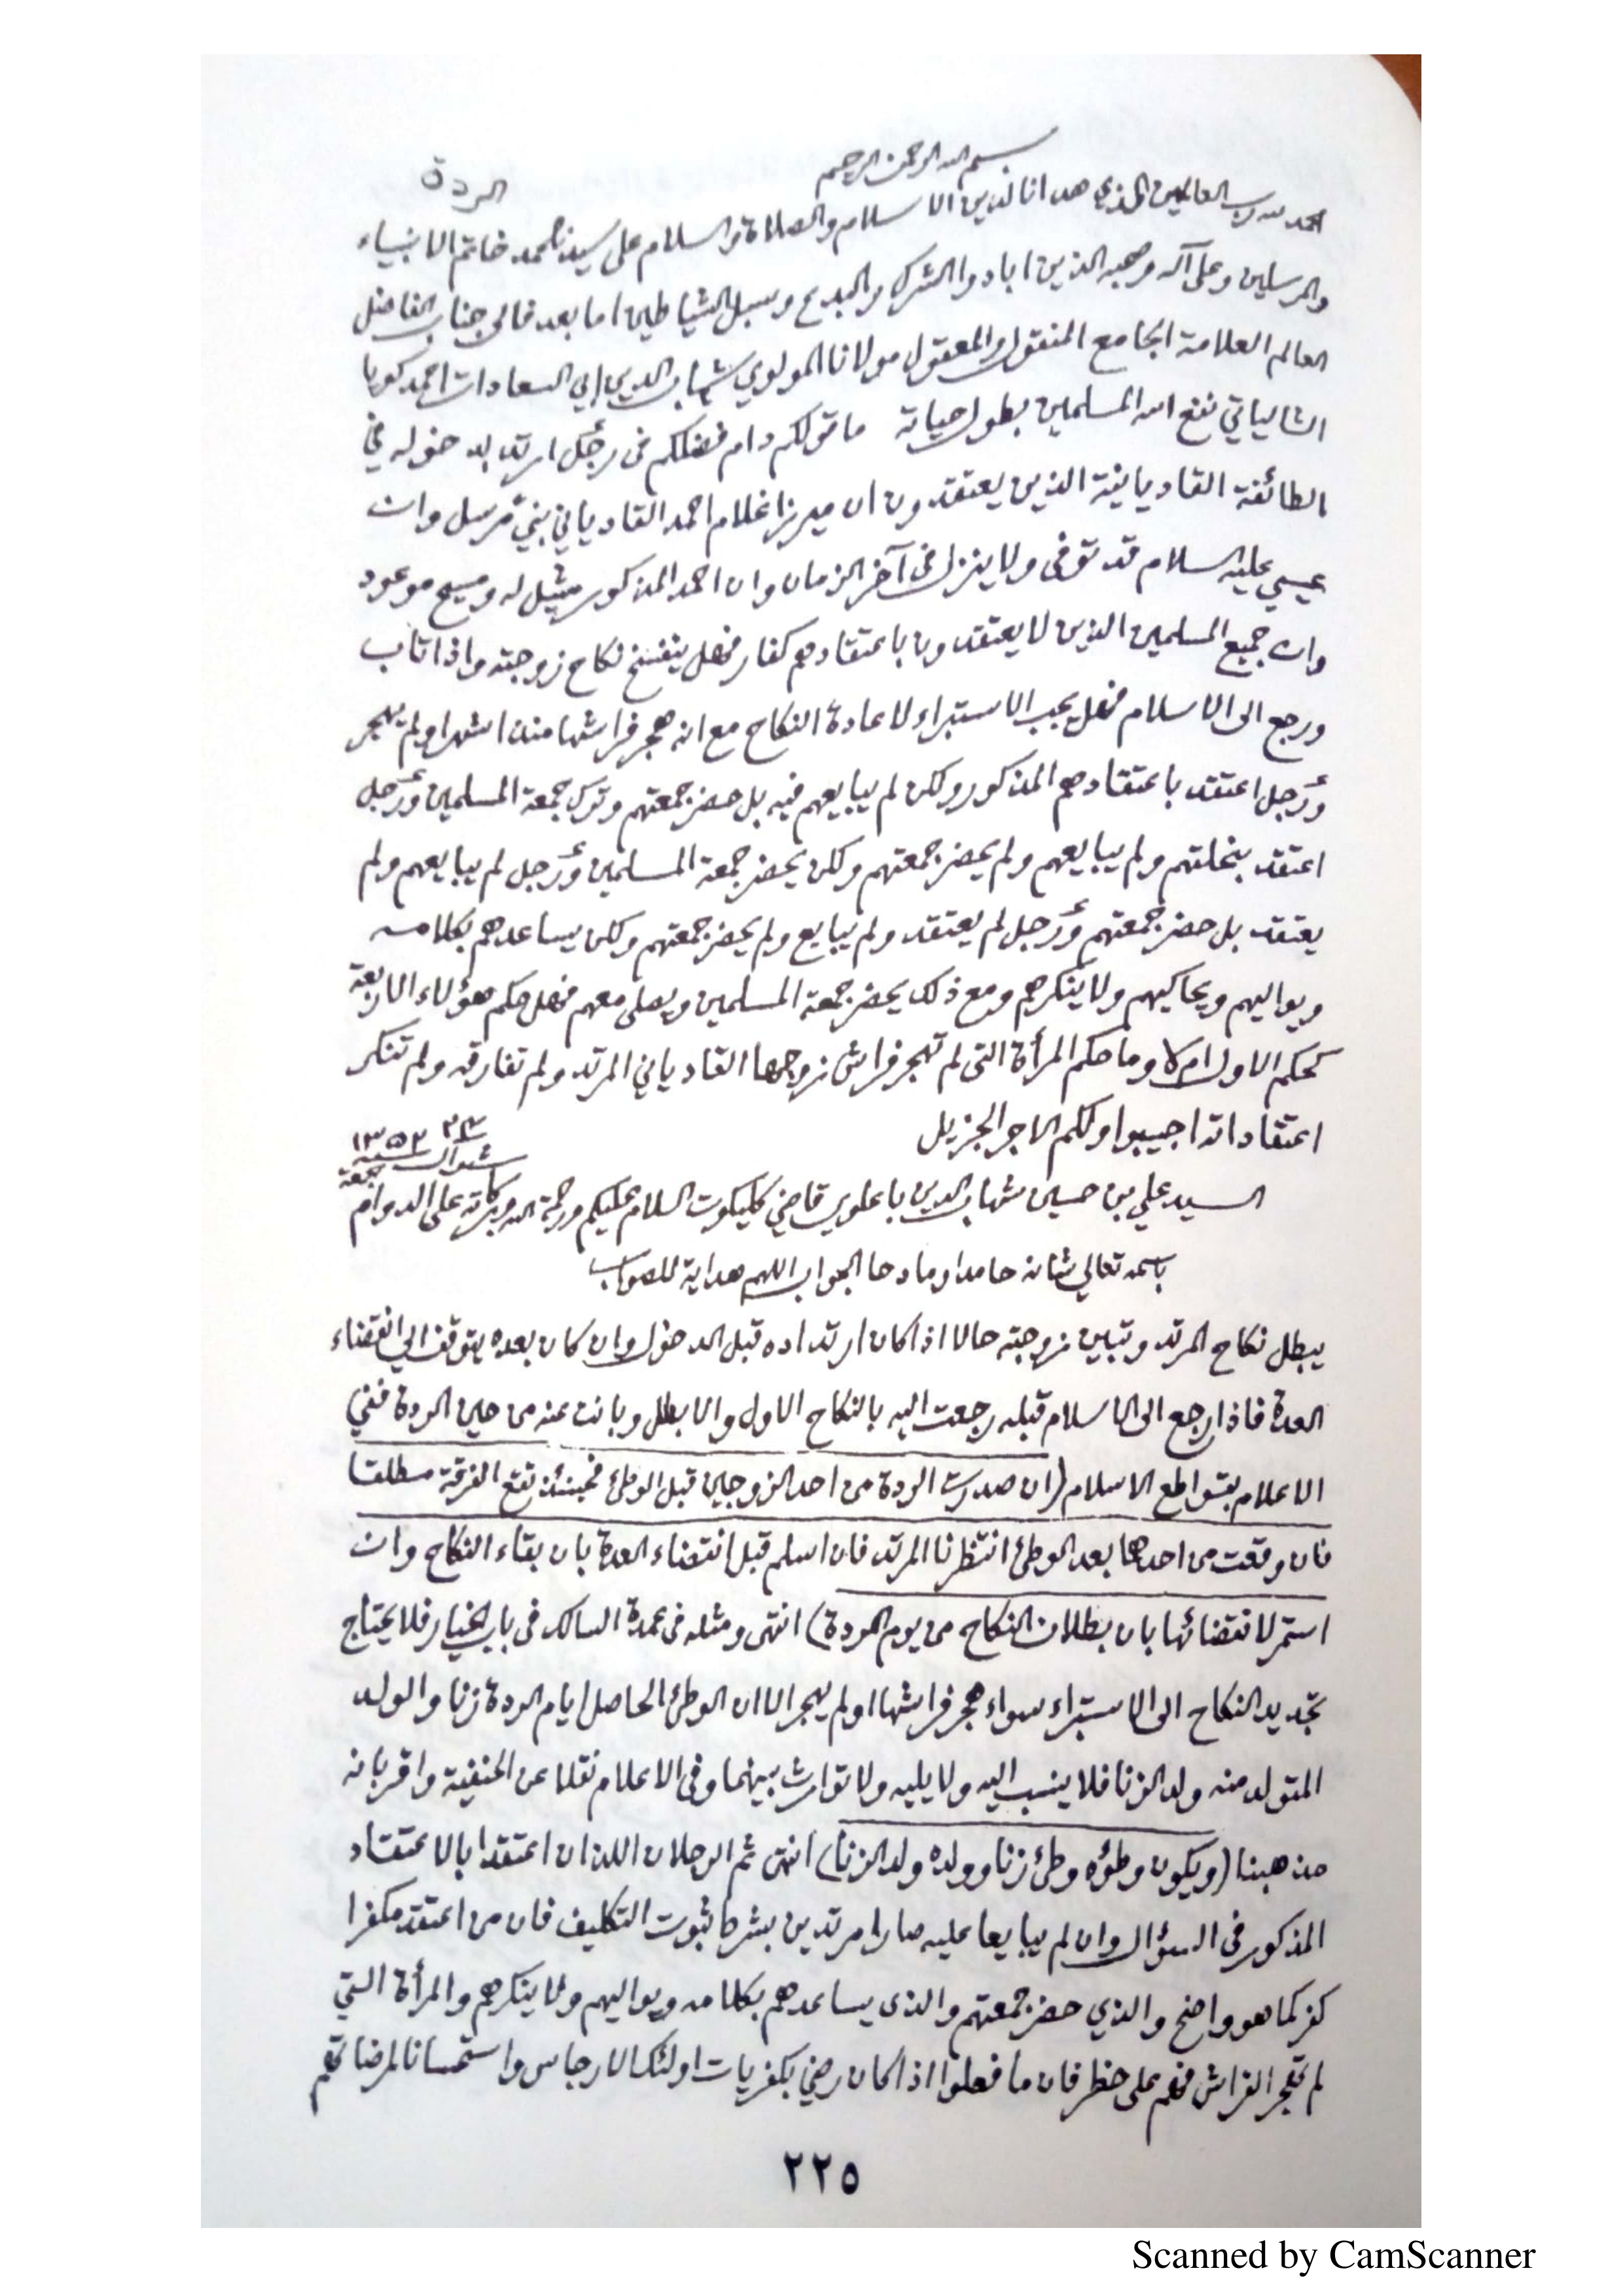 بسم الله الرحمن الرحيم
الردة
الحمد لله رب العالمين الذي هدانا لدين الاسلام والصلاة والسلام على سيدنا محمد خاتم الانبياء
والمرسلين وعلى آله وصحبه الذين ابادوا الشرك والبدع وسبل الشياطين اما بعد فالى جناب الفاضل
العالم العلامة الجامع المنقول والمعقول مولانا المولوي شهاب الدين ابي السعادات احمد كويا
الشالياتي نفع الله المسلمين بطول حياته ما قولكم دام فضلكم في رجل ارتد بدخوله في
الطائفة القاديانية الذين يعتقدون ان ميرزا غلام احمد القادياني نبي مرسل وان
عيسى عليه السلام قد توفى ولا ينزل في آخر الزمان وان احمد المذكور مثيل له ومسيح موعود
وان جميع المسلمين الذين لا يعتقدون باعتقادهم كفار فهل ينفسخ نكاح زوجته واذا تاب
ورجع الى الاسلام فهل يجب الاستبراء لاعادة النكاح مع انه هجر فراشها منذ اشهر او لم يهجر
ورجل اعتقد باعتقادهم المذكور ولكن لم يبايعهم فيه بل حضر جمعتهم وترك جمعة المسلمين ورجل
اعتقد بنحلتهم ولم يبايعهم ولم يحضر جمعتهم ولكن يحضر جمعة المسلمين ورجل لم يبايعهم ولم
يعتقد بل حضر جمعتهم ورجل لم يعتقد ولم يبايع ولم يحضر جمعتهم ولكن يساعدهم بكلامه
ويواليهم ويحاكيهم ولا ينكرهم ومع ذلك يحضر جمعة المسلمين ويصلي معهم فهل حكم هؤلاء الاربعة
كحكم الاول ام لا وما حكم المرأة التي لم تهجر فراش زوجها القادياني المرتد ولم تفارقه ولم تنكر
اعتقاداته اجيبوا ولكم الاجر الجزيل
شوال سنة ١٣٥٢
جمعة
السيد علي بن حسين شهاب الدين باعلوي قاضي كليكوت السلام عليكم ورحمة الله وبركاته على الدوام
باسمه تعالى شانه حامدا ومادحا الجواب اللهم هداية للصواب
يبطل نكاح المرتد وتبين زوجته حالا اذا كان ارتداده قبل الدخول وان كان بعده يتوقف الى انقضاء
العدة فاذا رجع الى الاسلام قبله رجعت اليه بالنكاح الاول والا بطل وبانت عنه من حين الردة ففي
الاعلام بقواطع الاسلام (ان صدرت الردة من احد الزوجين قبل الوطئ فحينئذ تقع الفرقة مطلقا
فان وقعت من احدهما بعد الوطئ انتظرنا المرتد فان اسلم قبل انقضاء العدة بان بقاء النكاح وان
استمر لانقضائها بان بطلان النكاح من يوم الردة) انتهى ومثله في عمدة السالك في باب الخيار فلا يحتاج
تجديد النكاح الى الاستبراء سواء هجر فراشها او لم يهجر الا ان الوطئ الحاصل ايام الردة زنا والولد
المتولد منه ولد الزنا فلا ينسب اليه ولا يليه ولا توارث بينهما وفى الاعلام نقلا عن الحنفية واقر بانه
مذهبنا (ويكون وطؤه وطئ زنا وولده ولد الزنا) انتهى ثم الرجلان اللذان اعتقدا بالاعتقاد
المذكور في السؤال وان لم يبايعا عليه صارا مرتدين بشرط ثبوت التكليف فان من اعتقد مكفرا
كفر كما هو واضح والذي حضر جمعتهم والذى يساعدهم بكلامه ويواليهم ولا ينكرهم والمرأة التي
لم تهجر الفراش فهم على خطر فان ما فعلوا اذا كان رضي بكفريات اولئك الارجاس واستحسانا لمرضاتهم
٢٢٥
Scanned by CamScanner